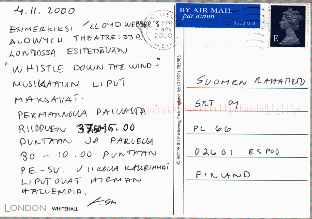 4.11.2000
ESIMERKIKSI LLOYD WEBBER'S
ALDWYCH THEATRE:SSA
LONTOOSSA ESITETTÄVÄN
"WHISTLE DOWN THE WIND"
MUSIKAALIN LIPUT
MAKSAVAT:
PERMANNOLLA PAIKASTA
RIIPPUEN 37.50-15.00
PUNTAAN JA PARVELLA
30 - 10.00 PUNTAAN
PE-SU
LIPUT OVAT HIEMAN
HALVEMPIA.
LONDON WHITEHALL
BY AIR MAIL
par avion
E
SUOMEN RAHAPAJA
PL 66
02601 ESPOO
FINLAND